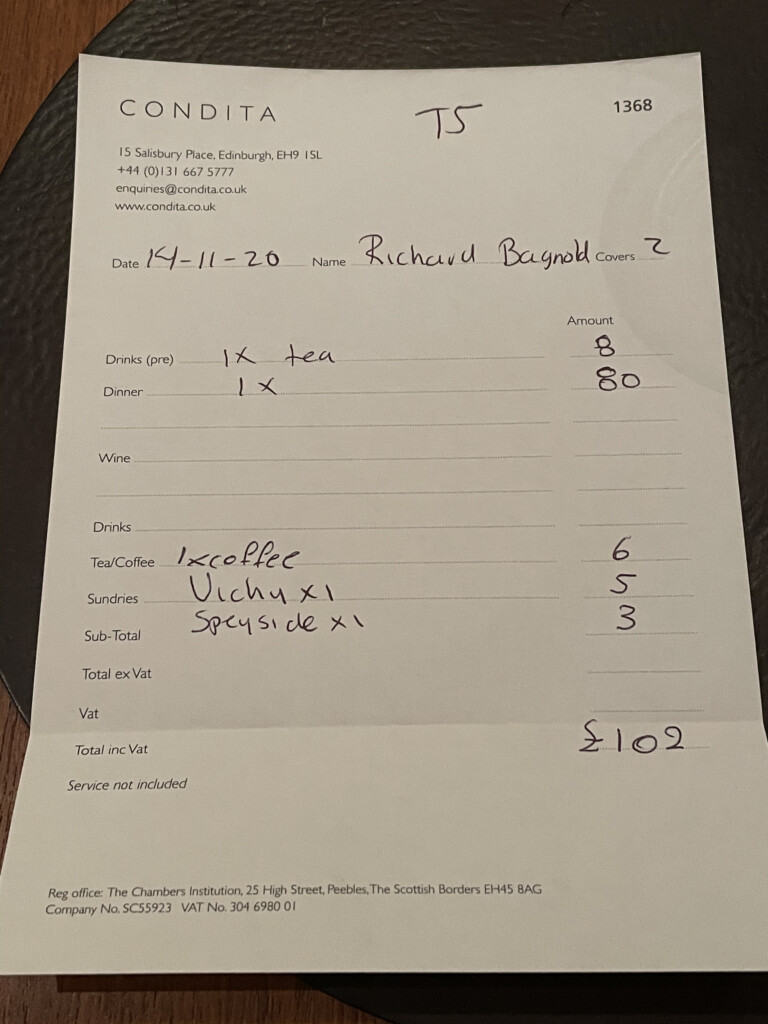 CONDITA
T5
1368
15 Salisbury Place, Edinburgh, EH9 1SL
+44 (0)131 667 5777
enquiries@condita.co.uk
www.condita.co.uk
Date 14-11-20 Name Richard Bagnold Covers 2
Amount
Drinks (pre) 1x tea 8
Dinner 1x 80
Wine
Drinks
Tea/Coffee 1xcoffee 6
Sundries Vichy x1 5
Sub-Total Speyside x1 3
Total ex Vat
Vat
Total inc Vat £102
Service not included
Reg office: The Chambers Institution, 25 High Street, Peebles, The Scottish Borders EH45 8AG
Company No. SC55923 VAT No. 304 6980 01